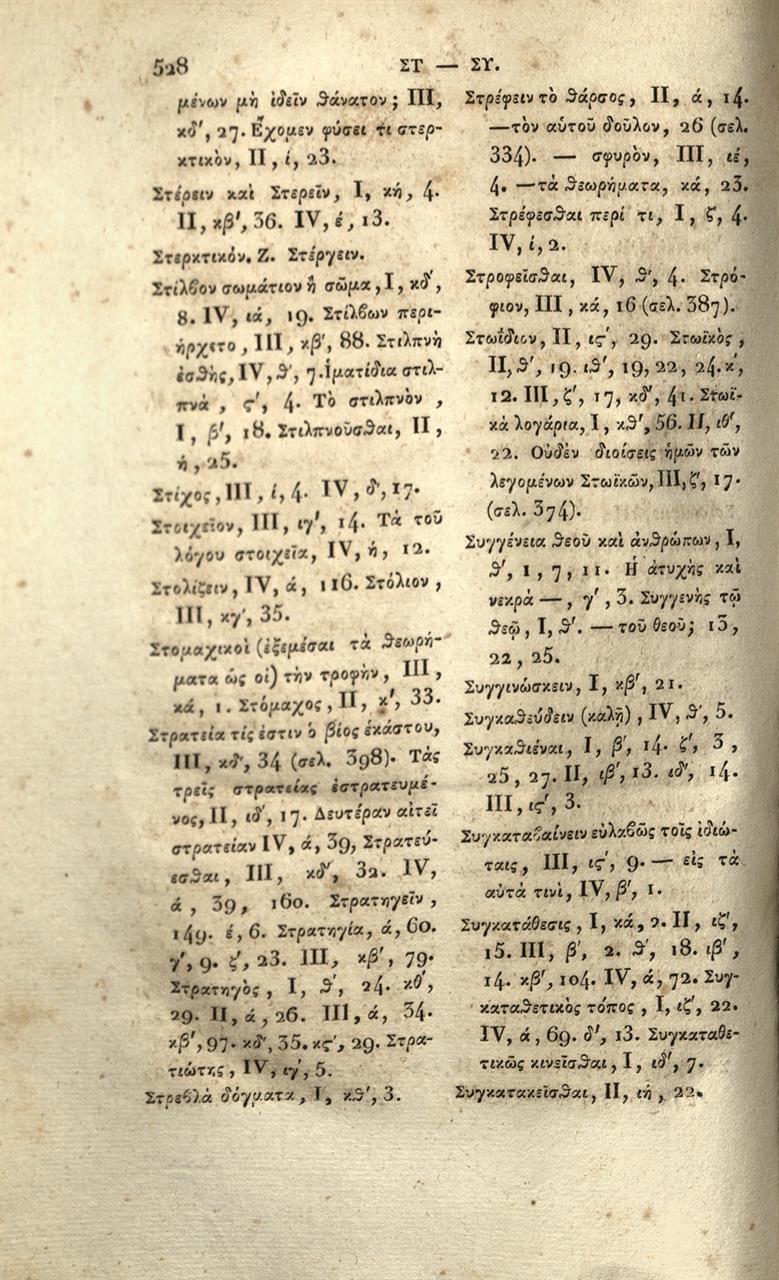 528
ΣΤ — ΣΥ.
μένων μὴ ἰδεῖν ϑάνατον; III,
κδ', 27. Ἔχομεν φύσει τι στερ-
κτικὸν, II, ί, 23.
Στέρειν καὶ Στερεῖν, I, κή, 4.
II, κβ', 36. IV, έ, 13.
Στερκτικόν. Ζ. Στέργειν.
Στίλβον σωμάτιον ἢ σῶμα, I, κδ',
8. IV, ιά, 19. Στίλβων περι-
ήρχετο, III, κβ', 88. Στιλπνὴ
ἐσϑὴς, IV, ϑ', 7. Ἱματίδια στιλ-
πνὰ, ς', 4. Τὸ στιλπνὸν,
I, β', 18. Στιλπνοῦσϑαι, II,
ή, 25.
Στίχος, III, ί, 4. IV, δ', 17.
Στοιχεῖον, III, ιγ', 14. Τὰ τοῦ
λόγου στοιχεῖα, IV, ή, 12.
Στολίζειν, IV, ά, 116. Στόλιον,
III, κγ', 35.
Στομαχικοὶ (ἐξεμέσαι τὰ ϑεωρή-
ματα ὡς οἱ) τὴν τροφὴν, III,
κά, 1. Στόμαχος, II, κ', 33.
Στρατεία τίς ἐστιν ὁ βίος ἑκάστου,
III, κδ', 34 (σελ. 398). Τὰς
τρεῖς στρατείας ἐστρατευμέ-
νος, II, ιδ', 17. Δευτέραν αἰτεῖ
στρατείαν IV, ά, 39, Στρατεύ-
εσϑαι, III, κδ', 32. IV,
ά, 39, 160. Στρατηγεῖν,
149. έ, 6. Στρατηγία, ά, 60.
γ', 9. ζ', 23. III, κβ', 79.
Στρατηγὸς, I, ϑ', 24. κθ',
29. II, ά, 26. III, ά, 34.
κβ', 97. κδ', 35. κς', 29. Στρα-
τιώτης, IV, ιγ', 5.
Στρεβλὰ δόγματα, I, κϑ', 3.
Στρέφειν τὸ ϑάρσος, II, ά, 14.
—τὸν αὑτοῦ δοῦλον, 26 (σελ.
334). — σφυρὸν, III, ιέ,
4. —τὰ ϑεωρήματα, κά, 23.
Στρέφεσϑαι περί τι, I, ζ', 4.
IV, ί, 2.
Στροφεῖσϑαι, IV, ϑ', 4. Στρό-
φιον, III, κά, 16 (σελ. 387).
Στωΐδιον, II, ις', 29. Στωϊκὸς,
II, ϑ', 19. ιϑ', 19, 22, 24. κ',
12. III, ζ', 17, κδ', 41. Στωϊ-
κὰ λογάρια, I, κϑ', 56. II, ιθ',
22. Οὐδὲν διοίσεις ἡμῶν τῶν
λεγομένων Στωϊκῶν, III, ζ', 17.
(σελ. 374).
Συγγένεια ϑεοῦ καὶ ἀνϑρώπων, I,
ϑ', 1, 7, 11. Ἡ ἀτυχὴς καὶ
νεκρὰ —, γ', 3. Συγγενὴς τῷ
ϑεῷ, I, ϑ'. — τοῦ θεοῦ; 13,
22, 25.
Συγγινώσκειν, I, κβ', 21.
Συγκαϑεύδειν (καλῇ), IV, ϑ', 5.
Συγκαϑιέναι, I, β', 14. ζ', 3,
25, 27. II, ιβ', 13. ιδ', 14.
III, ις', 3.
Συγκαταβαίνειν εὐλαβῶς τοῖς ἰδιώ-
ταις, III, ις', 9. — εἰς τὰ
αὐτὰ τινὶ, IV, β', 1.
Συγκατάθεσις, I, κά, 2. II, ιζ',
15. III, β', 2. ϑ', 18. ιβ',
14. κβ', 104. IV, ά, 72. Συγ-
καταϑετικὸς τόπος, I, ιζ', 22.
IV, ά, 69. δ', 13. Συγκαταθε-
τικῶς κινεῖσϑαι, I, ιδ', 7.
Συγκατακεῖσϑαι, II, ιή, 22.